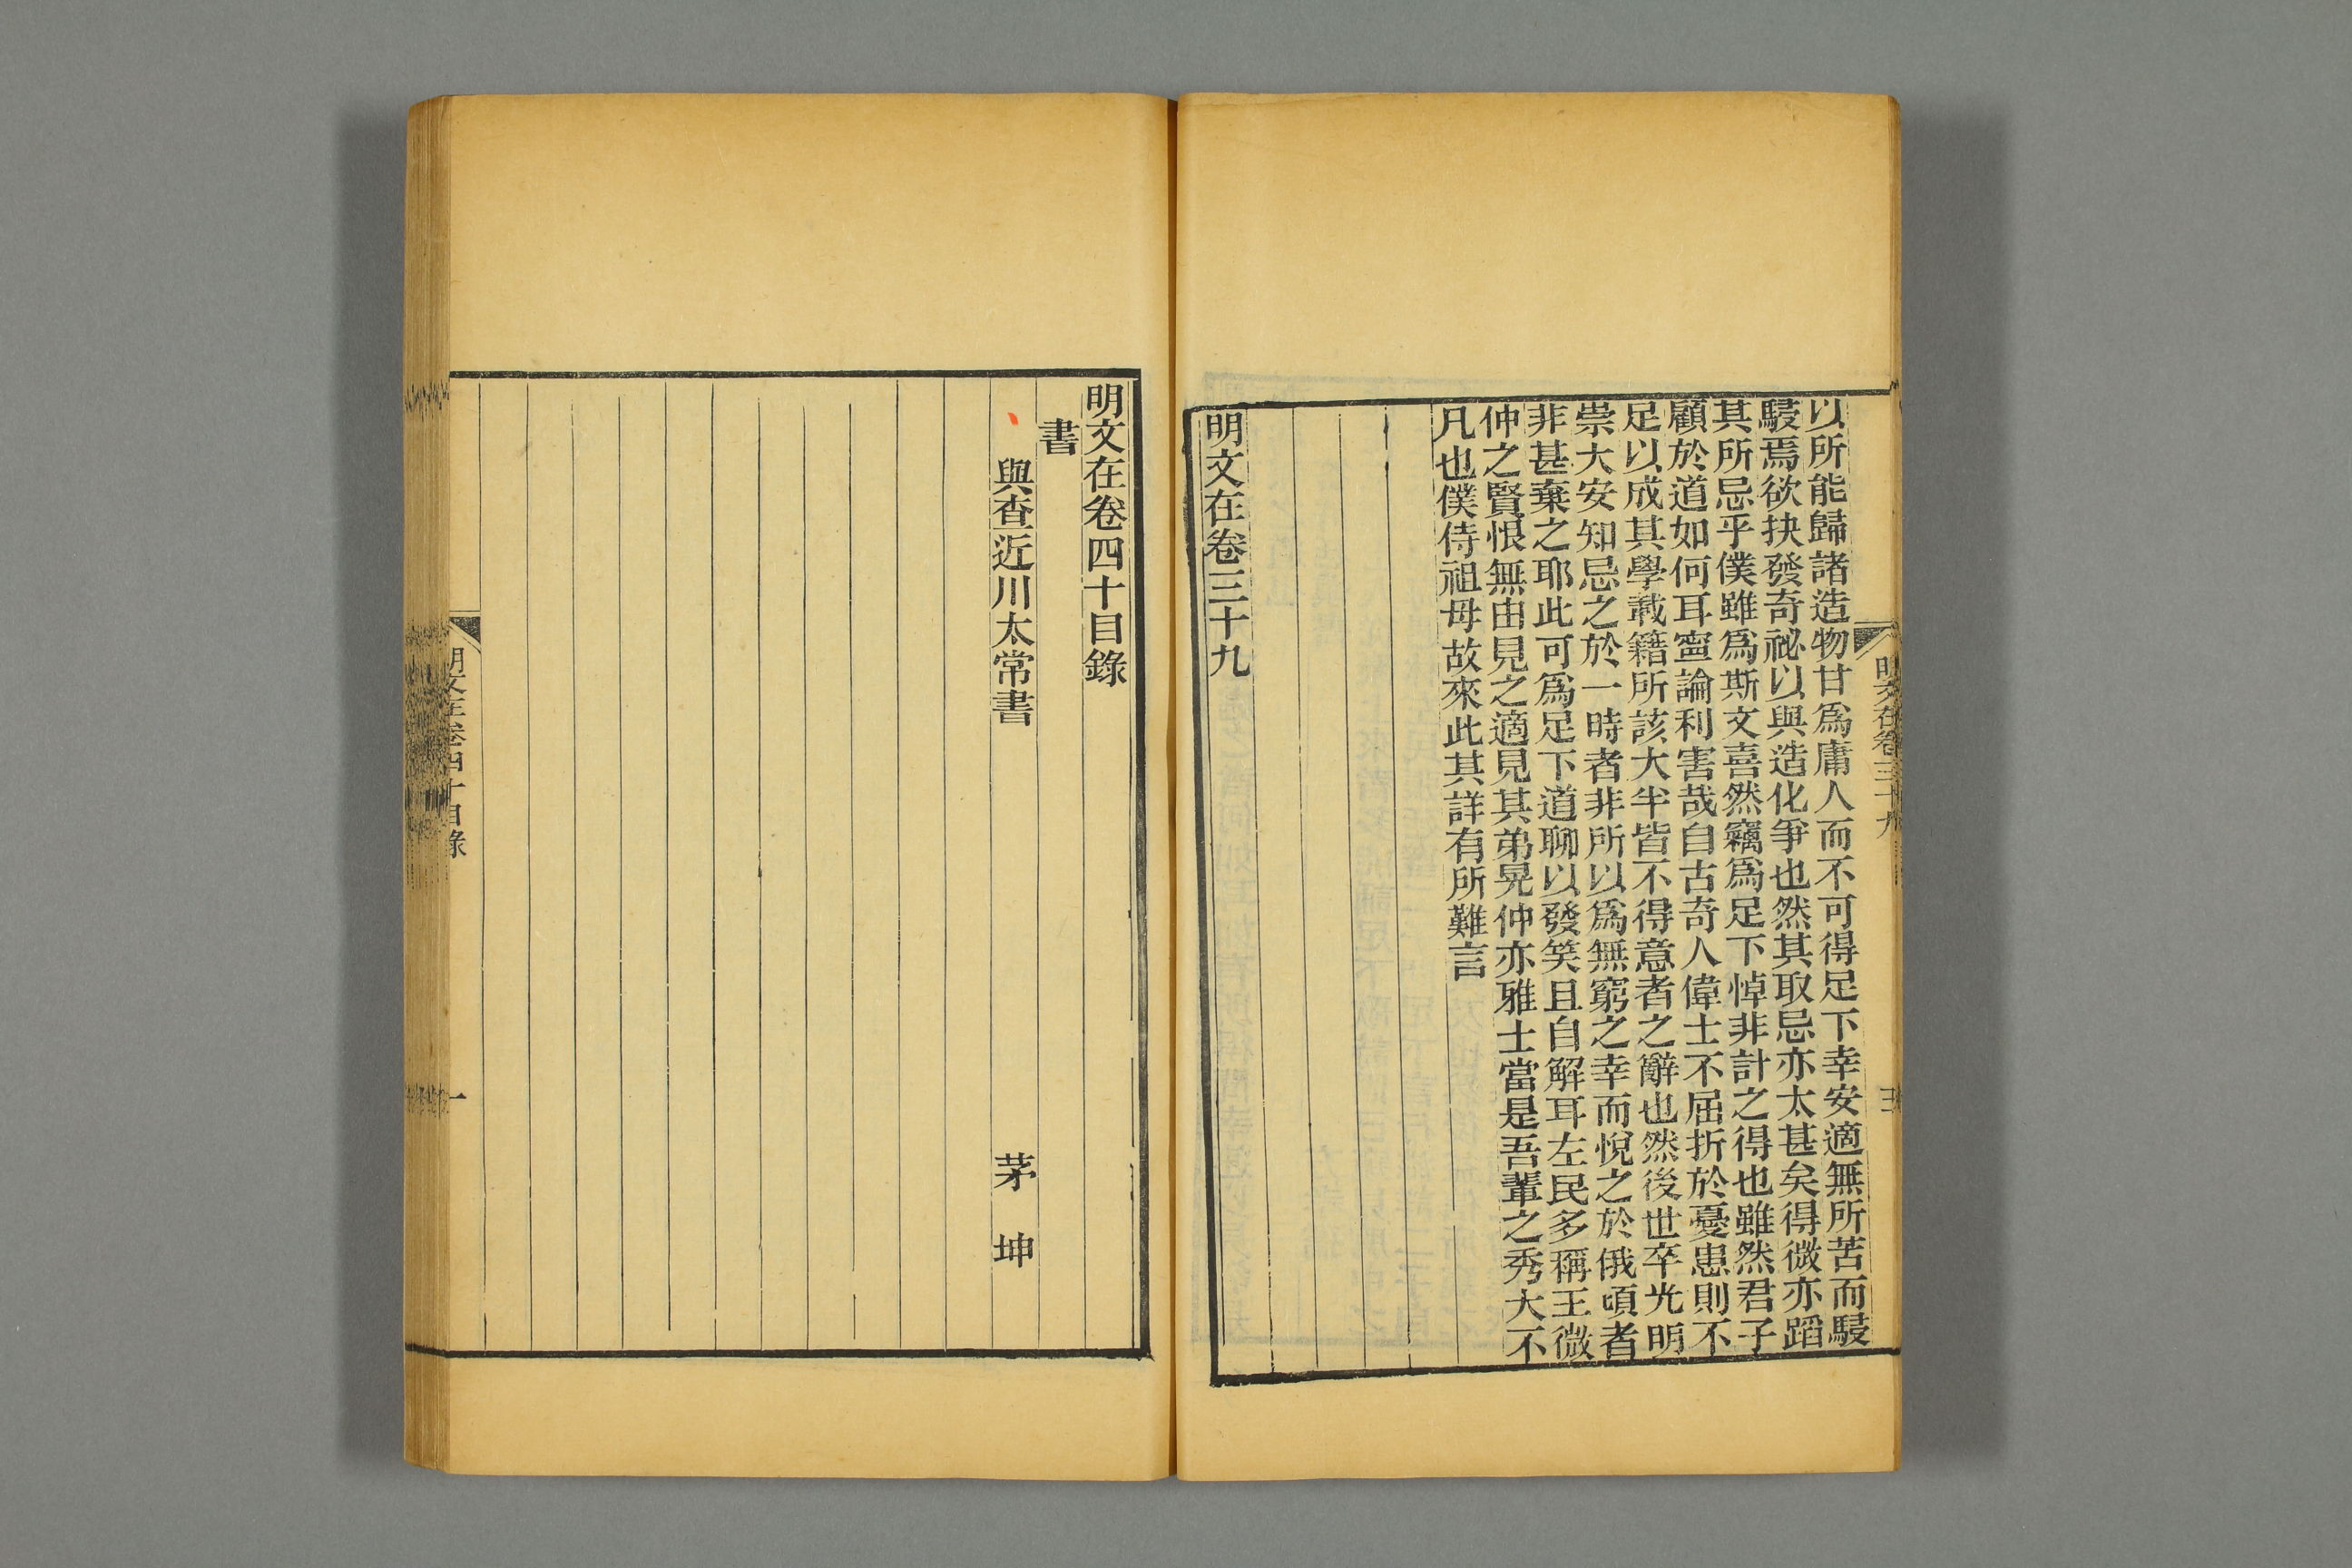 以所能歸諸造物甘爲庸人而不可得足下幸安適無所苦而駸
駸焉欲抉發奇祕以與造化爭也然其取忌亦太甚矣得微亦蹈
其所忌乎僕雖爲斯文喜然竊爲足下悼非計之得也雖然君子
顧於道如何耳寧論利害哉自古奇人偉士不屈折於憂患則不
足以成其學載籍所該大半皆不得意者之辭也然後世卒光明
崇大安知忌之於一時者非所以爲無窮之幸而悅之於俄頃者
非甚棄之耶此可爲足下道聊以發笑且自解耳左民多稱王微
仲之賢恨無由見之適見其弟晃仲亦雅士當是吾輩之秀大不
凡也僕侍祖母故來此其詳有所難言
明文在卷三十九
明文在卷三十九
明文在卷四十目錄
書
與查近川太常書 茅坤
明文在卷四十目錄
一